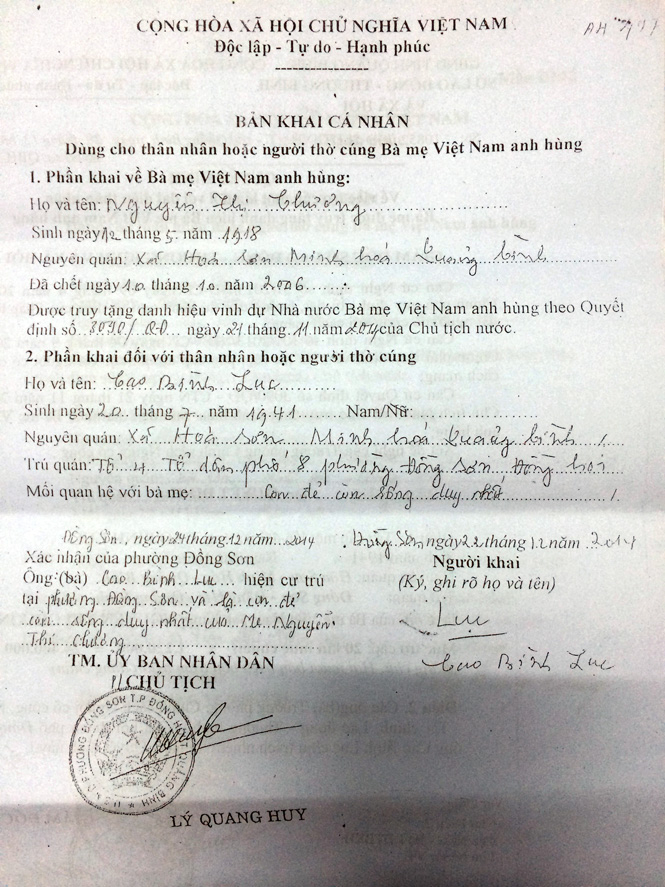 CỘNG HÒA XÃ HỘI CHỦ NGHĨA VIỆT NAM
Độc lập - Tự do - Hạnh phúc
BẢN KHAI CÁ NHÂN
Dùng cho thân nhân hoặc người thờ cúng Bà mẹ Việt Nam anh hùng
1. Phần khai về Bà mẹ Việt Nam anh hùng:
Họ và tên: Nguyễn Thị Chương
Sinh ngày 12 tháng 5 năm 1918
Nguyên quán: Xã Hoá Sơn Minh hoá Quảng bình
Đã chết ngày 10 tháng 10 năm 2006
Được truy tặng danh hiệu vinh dự Nhà nước Bà mẹ Việt Nam anh hùng theo Quyết
định số 3090/QĐ ngày 21 tháng 11 năm 2014 của Chủ tịch nước.
2. Phần khai đối với thân nhân hoặc người thờ cúng
Họ và tên: Cao Bình Lục
Sinh ngày 20 tháng 7 năm 1941 Nam/Nữ:
Nguyên quán: Xã Hoá Sơn Minh hoá Quảng bình
Trú quán: Tổ 4 Tổ dân phố 8 phường Đồng Sơn Đồng hới
Mối quan hệ với bà mẹ: Con đẻ còn sống duy nhất
Đồng Sơn, ngày 24 tháng 12 năm 2014 Đồng Sơn ngày 22 tháng 12 năm 2014
Xác nhận của phường Đồng Sơn Người khai
Ông (bà) Cao Bình Lục hiện cư trú (Ký, ghi rõ họ và tên)
tại phường Đồng Sơn và là con đẻ
còn sống duy nhất của Mẹ Nguyễn Lục
Thị Chương Cao Bình Lục
TM. ỦY BAN NHÂN DÂN
CHỦ TỊCH
U.B.N.D PHƯỜNG ĐỒNG SƠN T.P ĐỒNG HỚI T. QUẢNG BÌNH
LÝ QUANG HUY